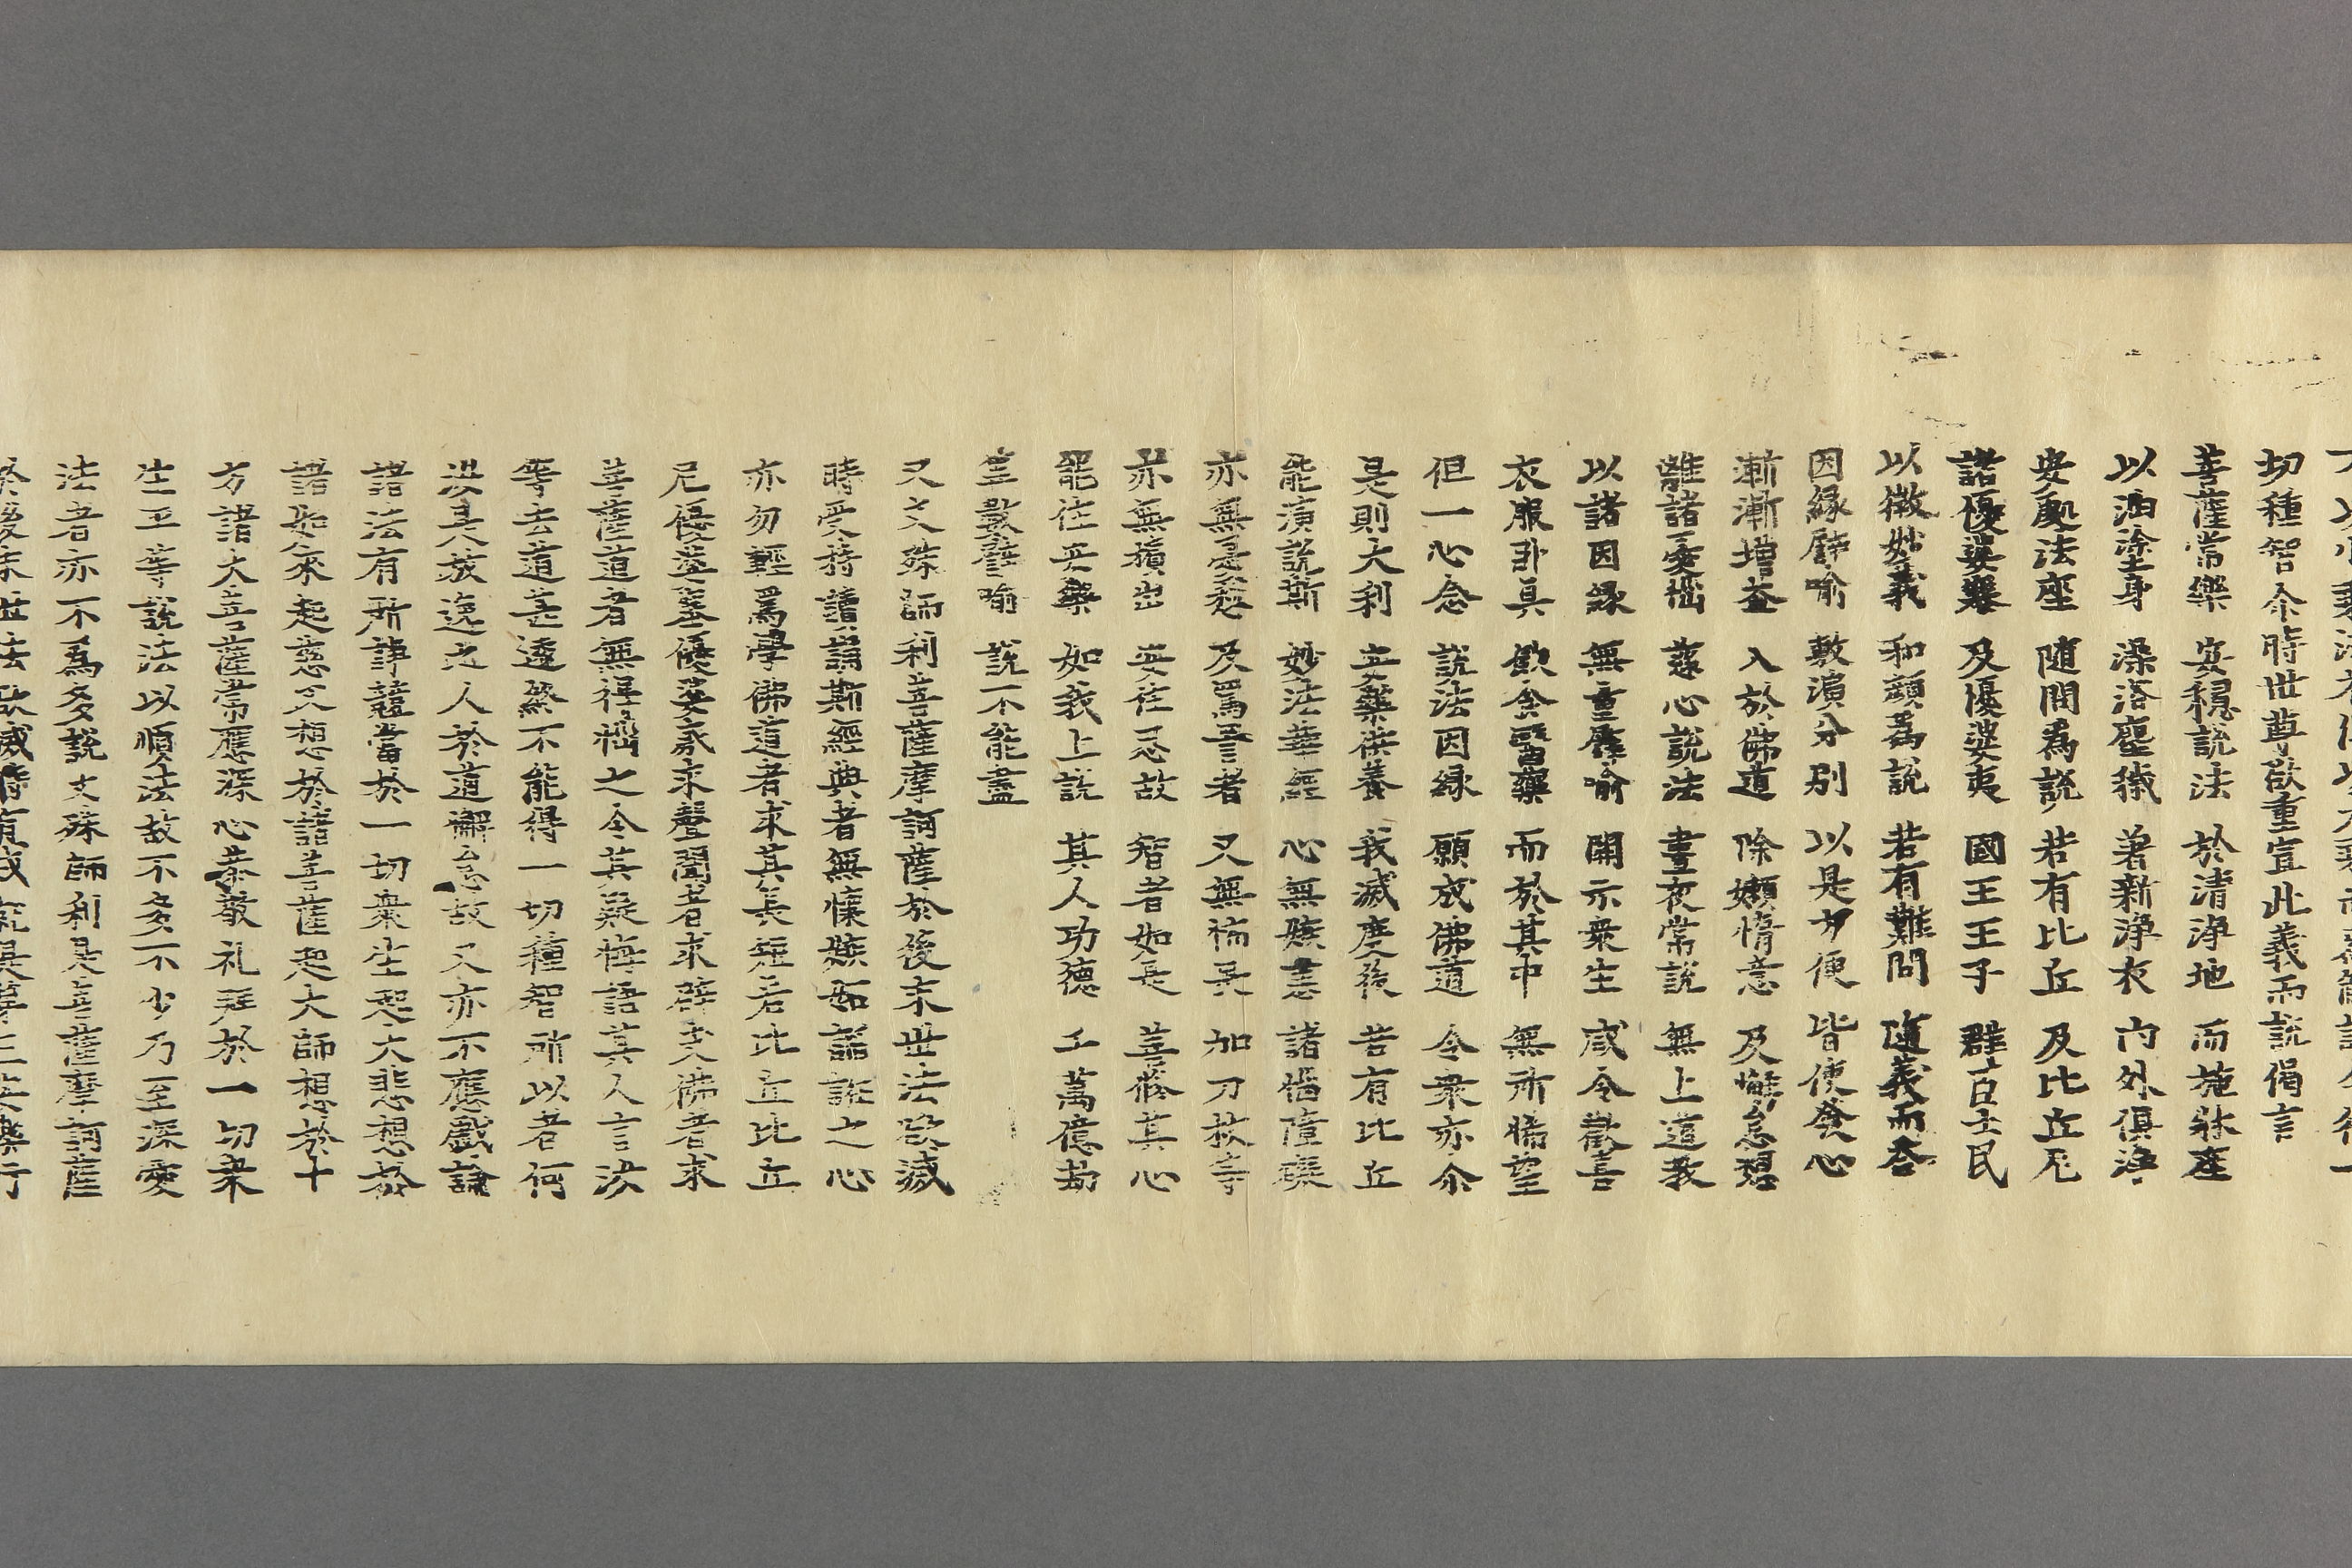 切種智尒時世尊欲重宣此義而說偈言
菩薩常樂 安穩說法 於清淨地 而施牀座
以油塗身 澡浴塵穢 著新淨衣 內外俱淨
安處法座 隨問為說 若有比丘 及比丘尼
諸優婆塞 及優婆夷 國王王子 群臣士民
以微妙義 和顏為說 若有難問 隨義而荅
因緣譬喻 敷演分別 以是方便 皆使發心
漸漸增益 入於佛道 除嬾惰意 及懈怠想
離諸憂惱 慈心說法 晝夜常說 無上道教
以諸因緣 無量譬喻 開示衆生 咸令歡喜
衣服卧具 飲食醫藥 而於其中 無所悕望
但一心念 說法因緣 願成佛道 令衆亦尒
是則大利 安樂供養 我滅度後 若有比丘
能演說斯 妙法華經 心無嫉恚 諸惱障礙
亦無憂愁 及罵詈者 又無怖畏 加刀杖等
亦無擯出 安住忍故 智者如是 善修其心
能住安樂 如我上說 其人功德 千萬億劫
筭數譬喻 說不能盡
又文殊師利菩薩摩訶薩於後末世法欲滅
時受持讀誦斯經典者無懷嫉妬諂誑之心
亦勿輕罵學佛道者求其長短若比丘比丘
尼優婆塞優婆夷求聲聞者求辟支佛者求
菩薩道者無得惱之令其疑悔語其人言汝
等去道甚遠終不能得一切種智所以者何
汝是放逸之人於道懈怠故又亦不應戲論
諸法有所諍競當於一切衆生起大悲想於
諸如來起慈父想於諸菩薩起大師想於十
方諸大菩薩常應深心恭敬礼拜於一切衆
生平等說法以順法故不多不少乃至深愛
法者亦不為多說文殊師利是菩薩摩訶薩
於後末世法欲滅時有成就是第三安樂行